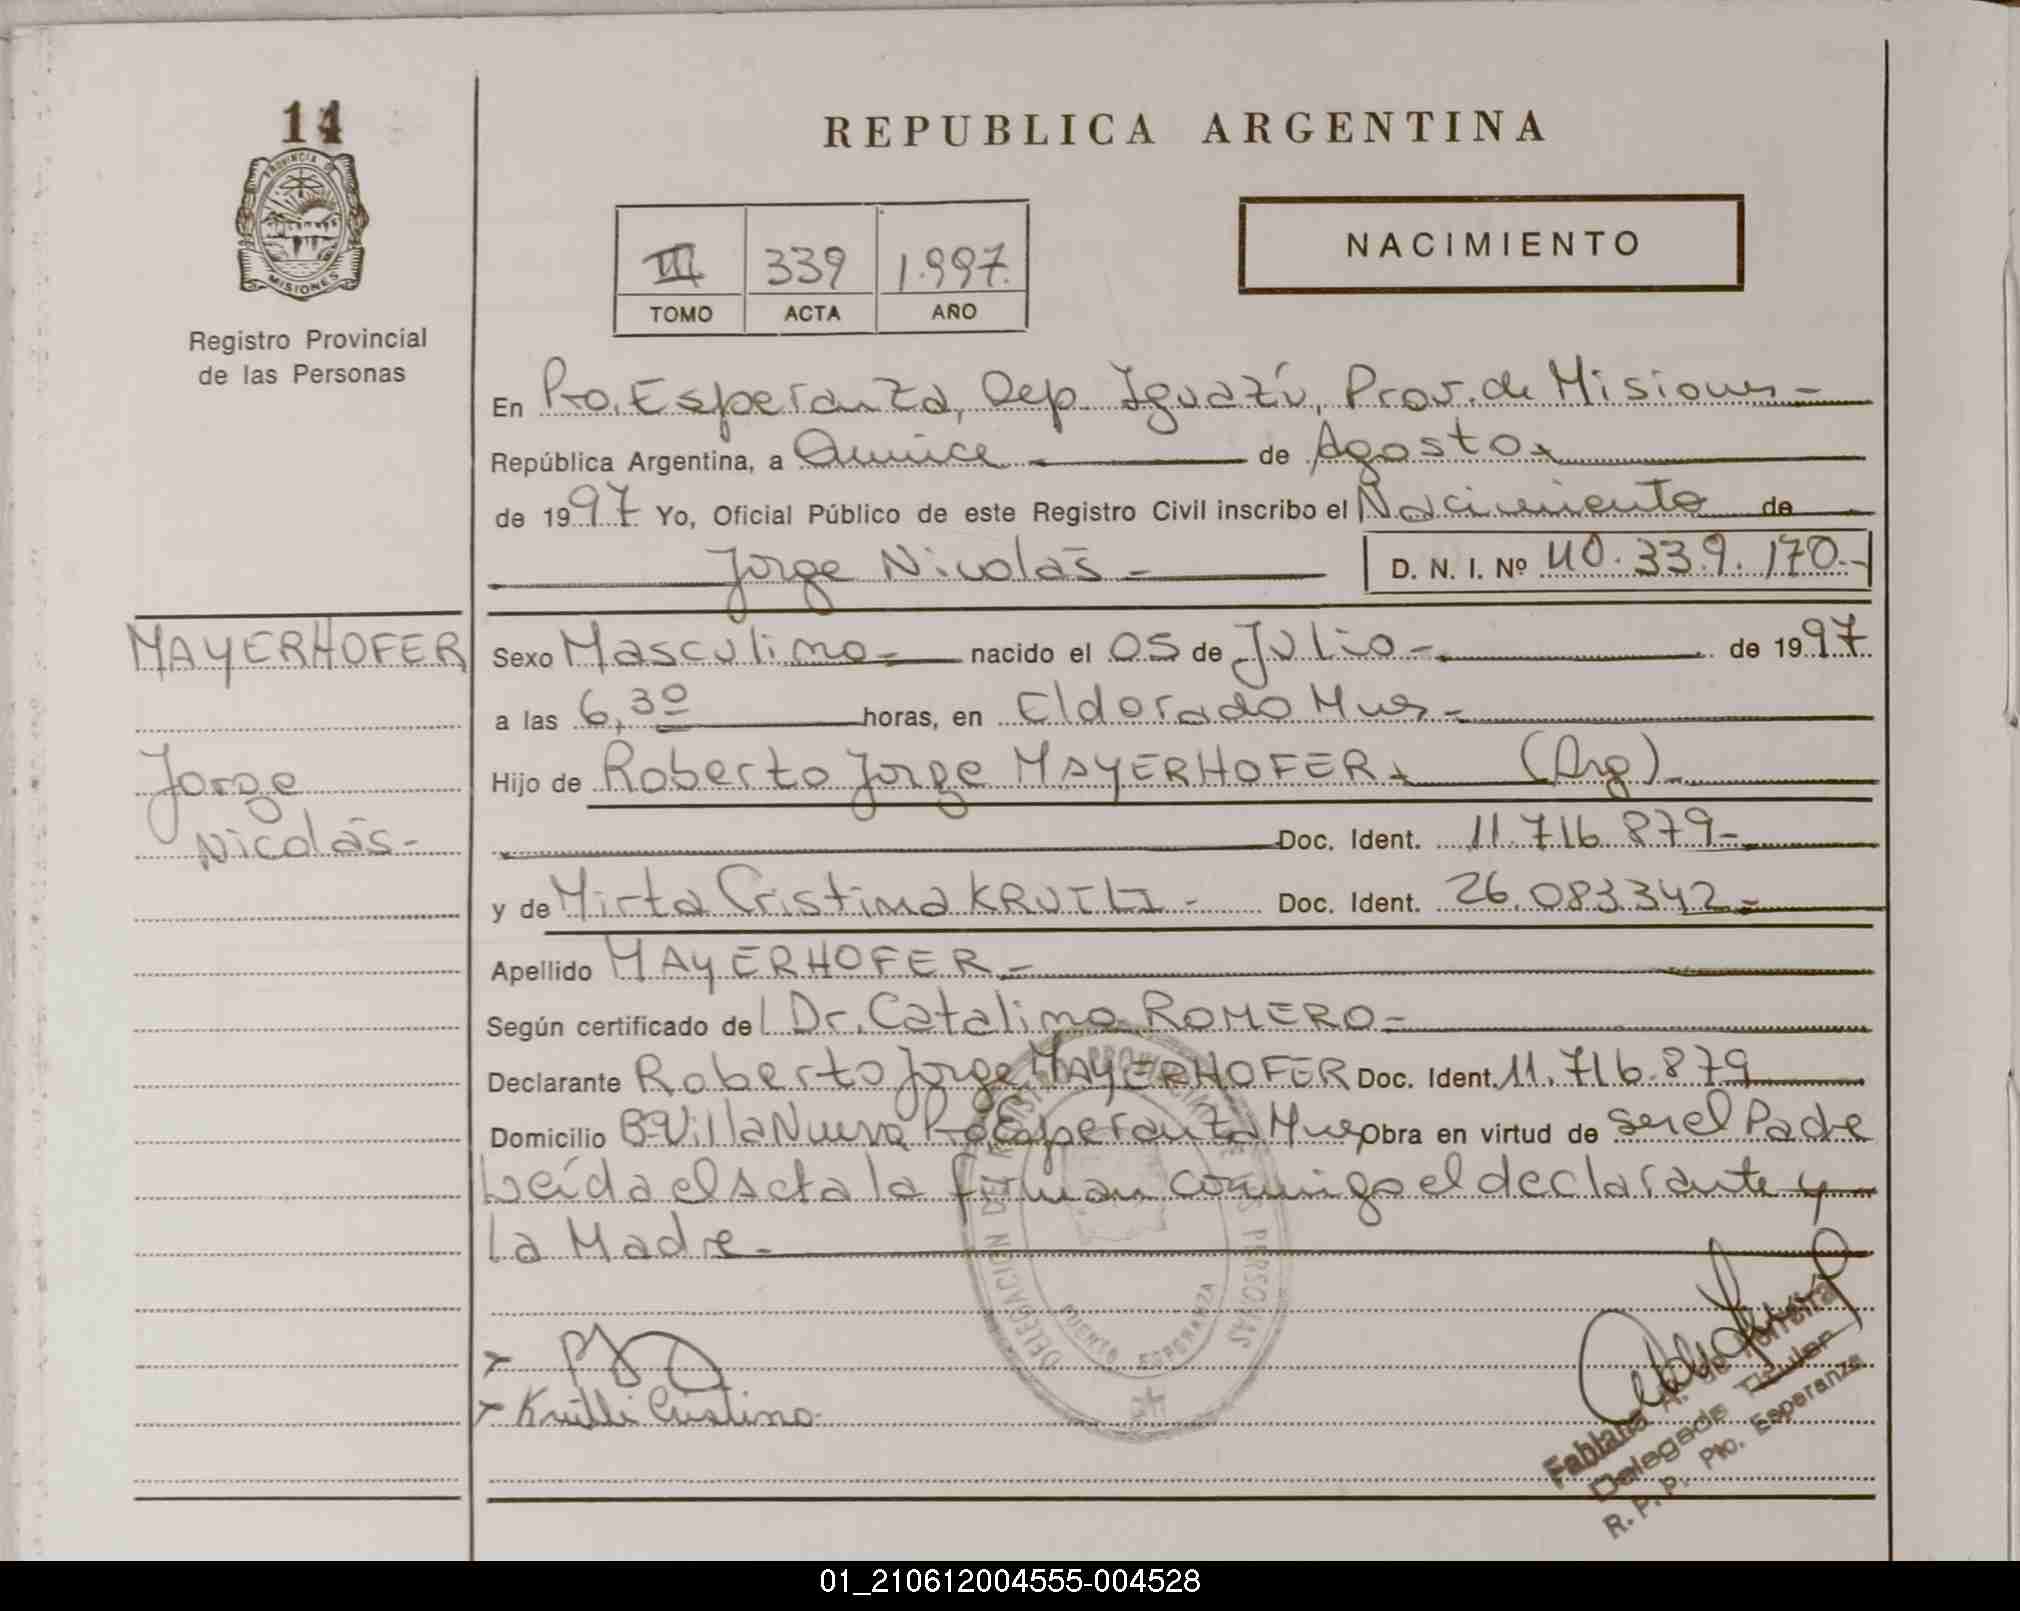 14
PROVINCIA DE
MISIONES
Registro Provincial
de las Personas
REPUBLICA ARGENTINA
III 339 1.997.
TOMO ACTA AÑO
NACIMIENTO
En Pto. Esperanza, Dep. Iguazú, Prov. de Misiones -
República Argentina, a Quince - de Agosto
de 1997 Yo, Oficial Público de este Registro Civil inscribo el Nacimiento de
Jorge Nicolás - D. N. I. Nº 40.339.170.-
MAYERHOFER
Jorge
Nicolás -
Sexo Masculino - nacido el 05 de Julio - de 1997
a las 6,30 horas, en Eldorado Mnes -
Hijo de Roberto Jorge MAYERHOFER (Arg)
Doc. Ident. 11.716.879-
y de Mirta Cristina KRUTLI - Doc. Ident. 26.083.342 -
Apellido MAYERHOFER -
Según certificado del Dr. Catalino ROMERO -
Declarante Roberto Jorge MAYERHOFER Doc. Ident. 11.716.879
Domicilio Bº Villa Nueva Pto Esperanza Mnes Obra en virtud de ser el Padre
Leída el acta la firman conmigo el declarante y
la Madre -
DELEGACION DEL REGISTRO PROVINCIAL DE LAS PERSONAS
PUERTO ESPERANZA
Krutli Cristina
Fabiana A. de Ferreira
Delegada Titular
R. P. P. Pto. Esperanza
01_210612004555-004528